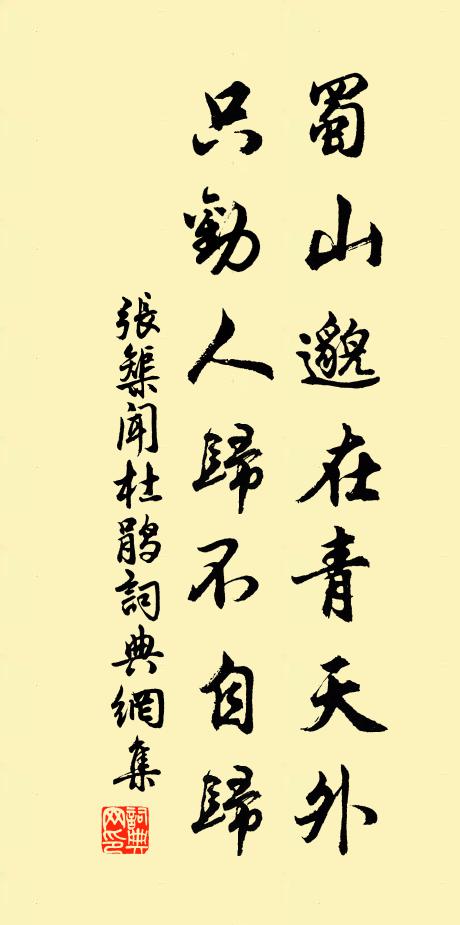 蜀山邈在青天外
只勸人歸不自歸
張榘聞杜鵑詞典網集
詞典網印